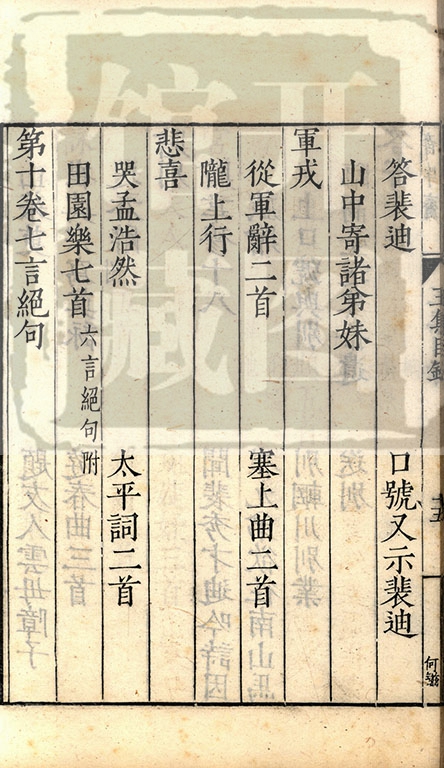 答裴迪 口號又示裴迪
山中寄諸弟妹
軍戎
從軍辭二首 塞上曲二首
隴上行
悲喜
哭孟浩然 太平詞二首
田園樂七首 六言絕句附
第十卷七言絕句